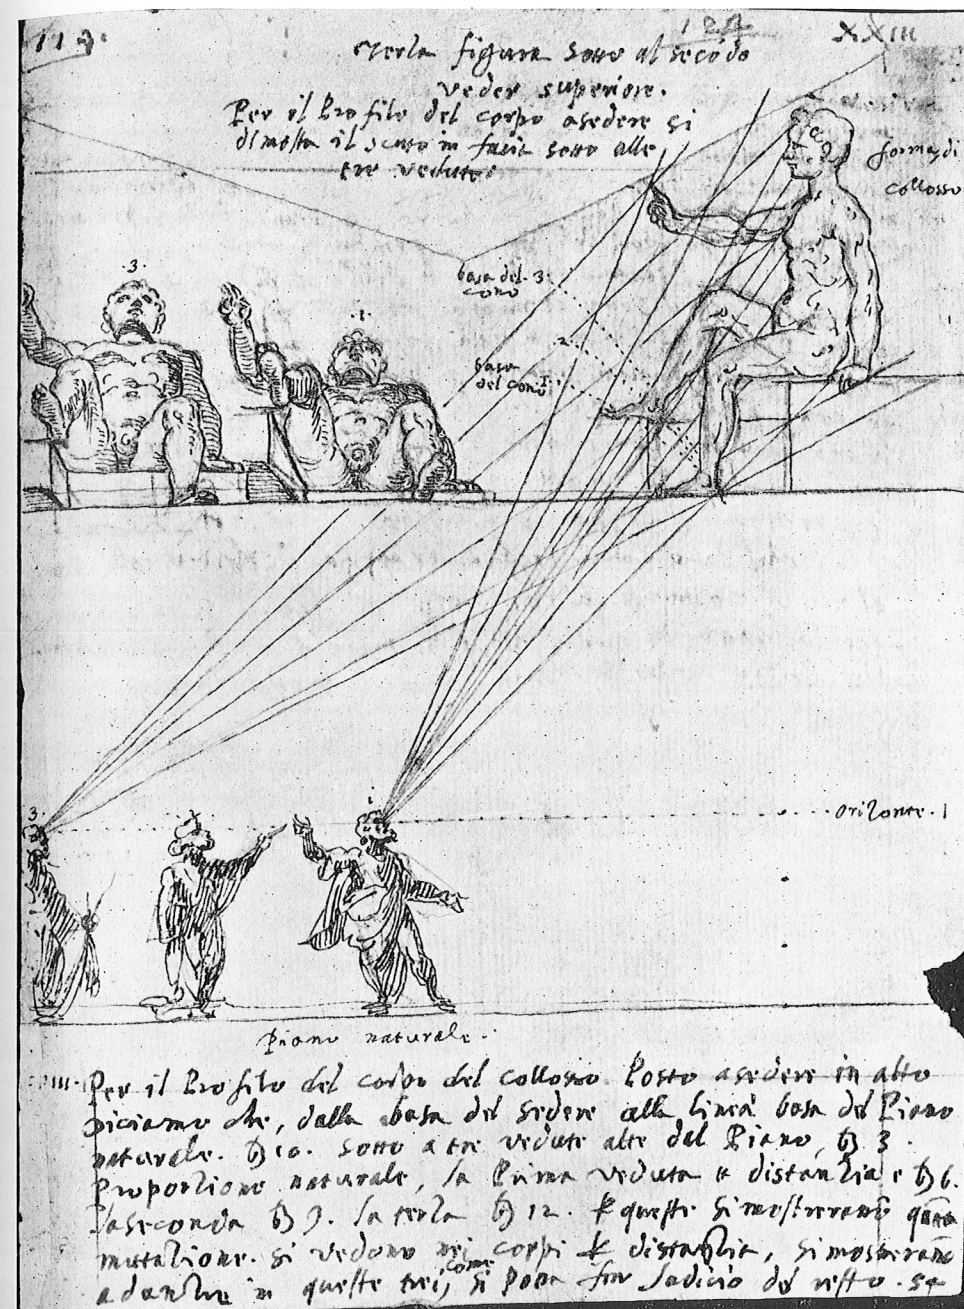 119.
XXIII
Terza figura sotto al secõdo
veder superiore.
Per il Profilo del corpo asedere si
dimostra il scurto in facia sotto alle
tre vedute
forma di
collosso
.3.
.1.
basa del .3.
cono
2
basa
del cono 1.
3.
1.
orizonte.1
Piano naturale.
Per il Profilo del corpo del collosso Posto asedere in alto
diciamo che, dalla basa del sedere alla linea basa del Piano
naturale. 10. sotto a tre vedute alte dal Piano, 3.
Proportione naturale, la Prima veduta distantia e 6.
la seconda 9. la terza 12. queste si mostrerano
mutatione si vedono nei corpi distantia, si mostrerano
adantre in queste trei, come si Poʃa far Iudicio del resto.